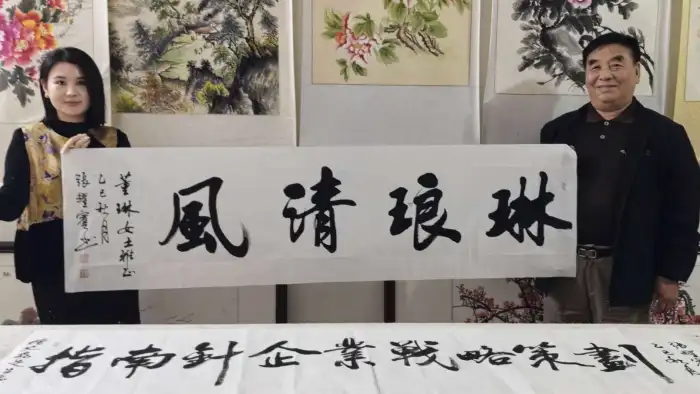 琳琅清風
董琳女士雅正
乙巳秋月
張耀寶書
指南針企業戰略策劃